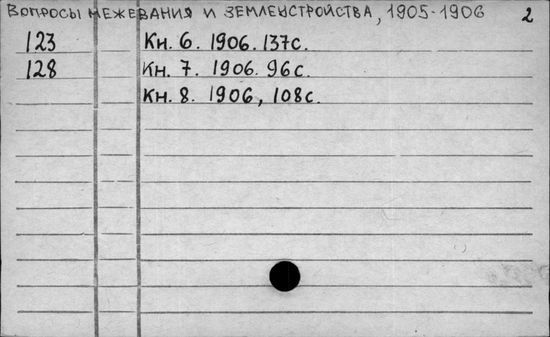 Вопросы межевания и землеустройства, 1905-1906 2
123 Кн. 6. 1906. 137с.
128 Кн. 7. 1906. 96с.
Кн. 8. 1906, 108с.